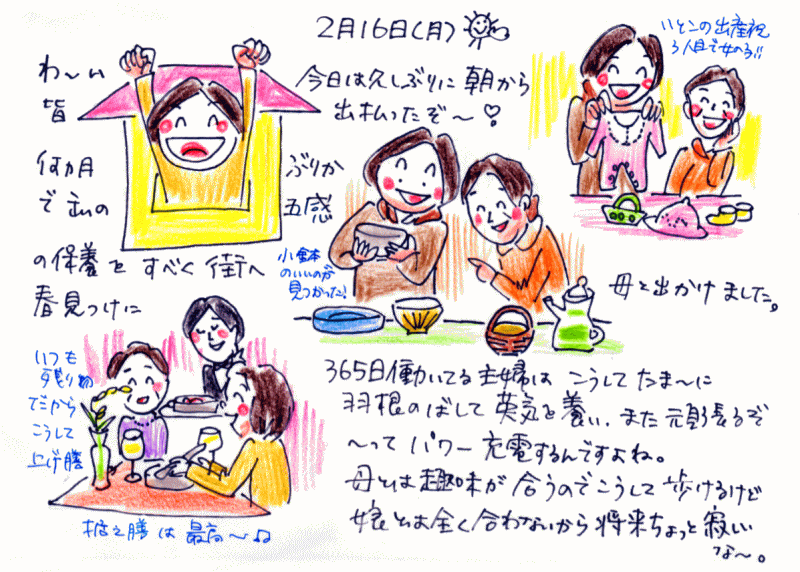 2月16日(月)
今日は久しぶりに朝から
出払ったぞ〜♡
わ〜い
皆
何ヵ月ぶりか
で 五感
の保養をすべく街へ
春見つけに
いとこの出産祝
3人目で女の子!!
小鉢
のいいのが
見つかった!
母と出かけました。
いつも
残り物
だから
こうして
上げ膳
据え膳は最高〜♫
365日働いてる主婦は こうしてたま〜に
羽根のばして英気を養い、また頑張るぞ
〜って パワー充電するんですよね。
母とは趣味が合うのでこうして歩けるけど
娘とは全く合わないから将来ちょっと寂しい
な〜。